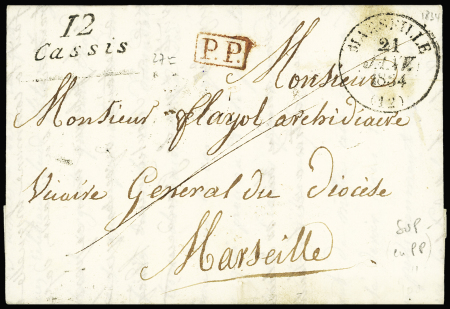 12
Cassis
P.P.
MARSEILLE
21
JANV.
1834
(12)
1834
27=
Monsieur
Monsieur flayol archidiacre
Vicaire General du Diocèse
Marseille
SUP
en PP)